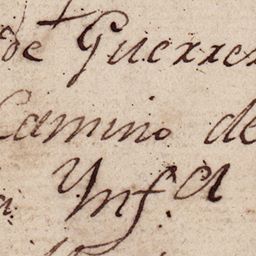 de Guerrer
Camino de
a Ynf.a